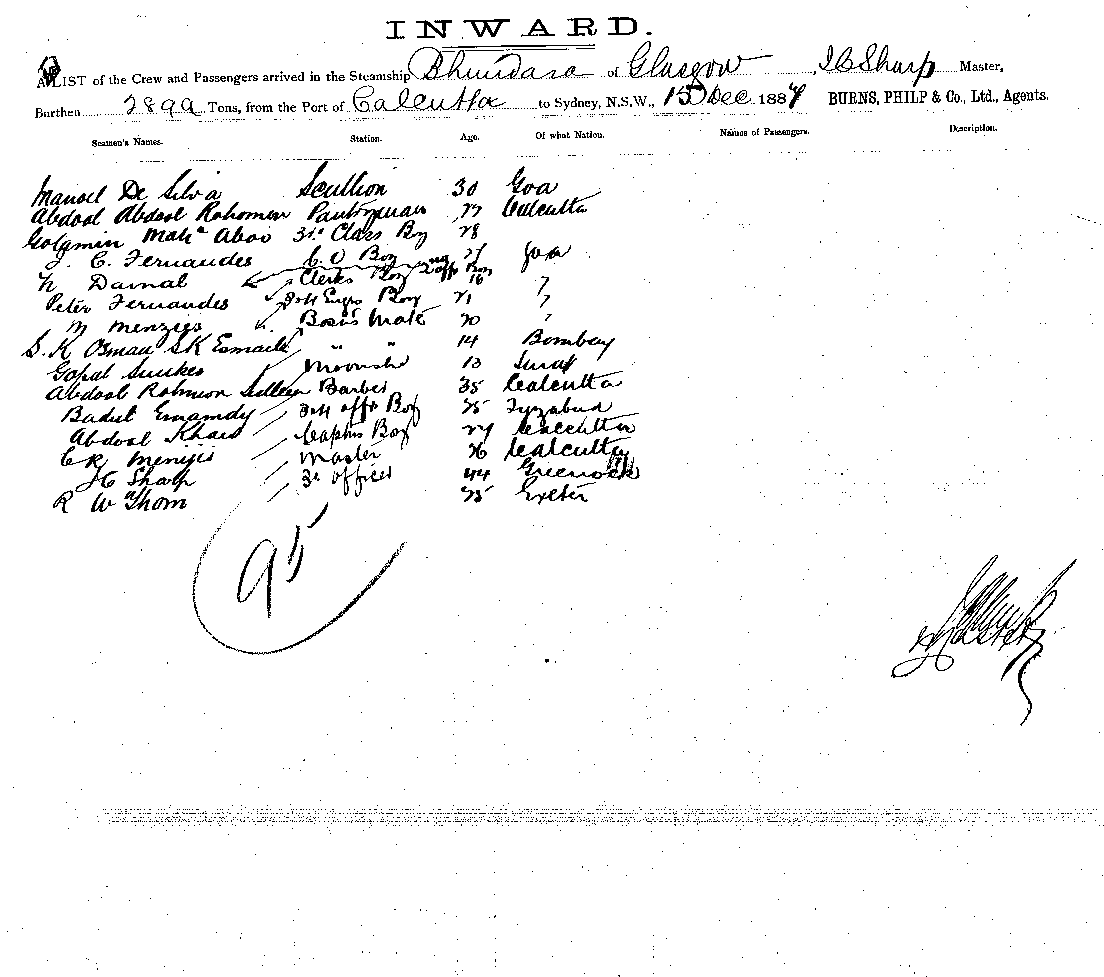 INWARD.
A LIST of the Crew and Passengers arrived in the Steamship Bhundara of Glasgow, J C Sharp Master,
Burthen 2899 Tons, from the Port of Calcutta to Sydney, N.S.W., 15 Dec 1887 BURNS, PHILP & Co., Ltd., Agents.
Seamen's Names. Station. Age. Of what Nation. Names of Passengers. Description.
Manoel De Silva Scullion 30 Goa
Abdool Abdool Rahomen Pantryman 27 Calcutta
Golamin Mah Aboo 3rd Class Boy 28
J. C. Fernandes C. O Boy Goa
N Damal Clerks Boy 2 Offs Boy 16
Peter Fernandes Engrs Boy 21
M Menzies Bosns Mate 20
S. K Osman SK Esmaile " " 14 Bombay
Gopal 13 Surat
Abdool Rahmon Barber 35 Calcutta
Badul Emamdy offs Boy 25 Fyzabad
Abdool Khan Captns Boy 27 Calcutta
C R Master 26 Calcutta
J C Sharp 3d officer 44 Greenock
R W Thom 25 Exeter
95
Master